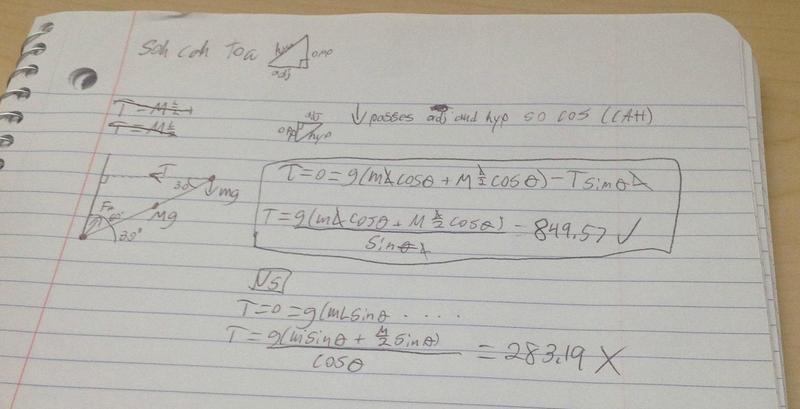 Soh cah Toa hyp opp
adj
T = M L/2 +
T = M L/2
adj
opp hyp
↓ passes adj and hyp so cos (CAH)
T
30 mg
Mg
Fn 60°
30°
T=0=g(mLcosθ + M L/2 cosθ) - T sinθ L
T = g(mLcosθ + M L/2 cosθ) / sinθ L = 849.57 ✓
Vs
T=0=g(mLsinθ . . . .
T = g(msinθ + M/2 sinθ) / cosθ = 283.19 X